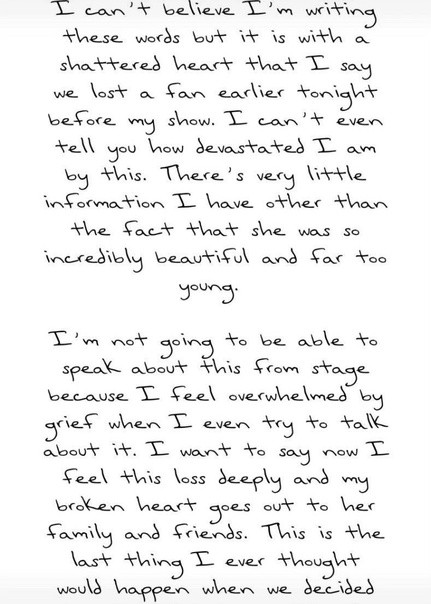 I can't believe I'm writing
these words but it is with a
shattered heart that I say
we lost a fan earlier tonight
before my show. I can't even
tell you how devastated I am
by this. There's very little
information I have other than
the fact that she was so
incredibly beautiful and far too
young.
I'm not going to be able to
speak about this from stage
because I feel overwhelmed by
grief when I even try to talk
about it. I want to say now I
feel this loss deeply and my
broken heart goes out to her
family and friends. This is the
last thing I ever thought
would happen when we decided